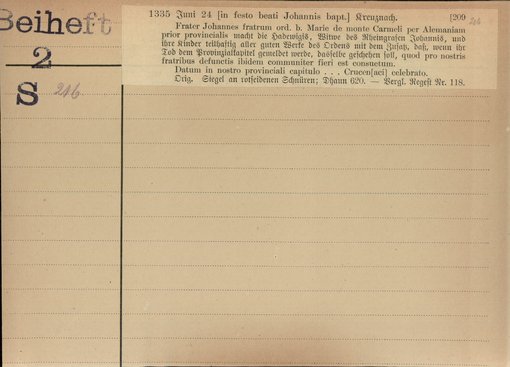 Beiheft
2
S 216
1335 Juni 24 [in festo beati Johannis bapt.] Kreuznach. [209
216
Frater Johannes fratrum ord. b. Marie de monte Carmeli per Alemaniam
prior provincialis macht die Hadewigis, Witwe des Rheingrafen Johannis, und
ihre Kinder teilhaftig aller guten Werke des Ordens mit dem Zusatz, daß, wenn ihr
Tod dem Provinzialkapitel gemeldet werde, dasselbe geschehen soll, quod pro nostris
fratribus defunctis ibidem communiter fieri est consuetum.
Datum in nostro provinciali capitulo . . . Crucen[aci] celebrato.
Orig. Siegel an rotseidenen Schnüren; Dhaun 620. — Vergl. Regest Nr. 118.